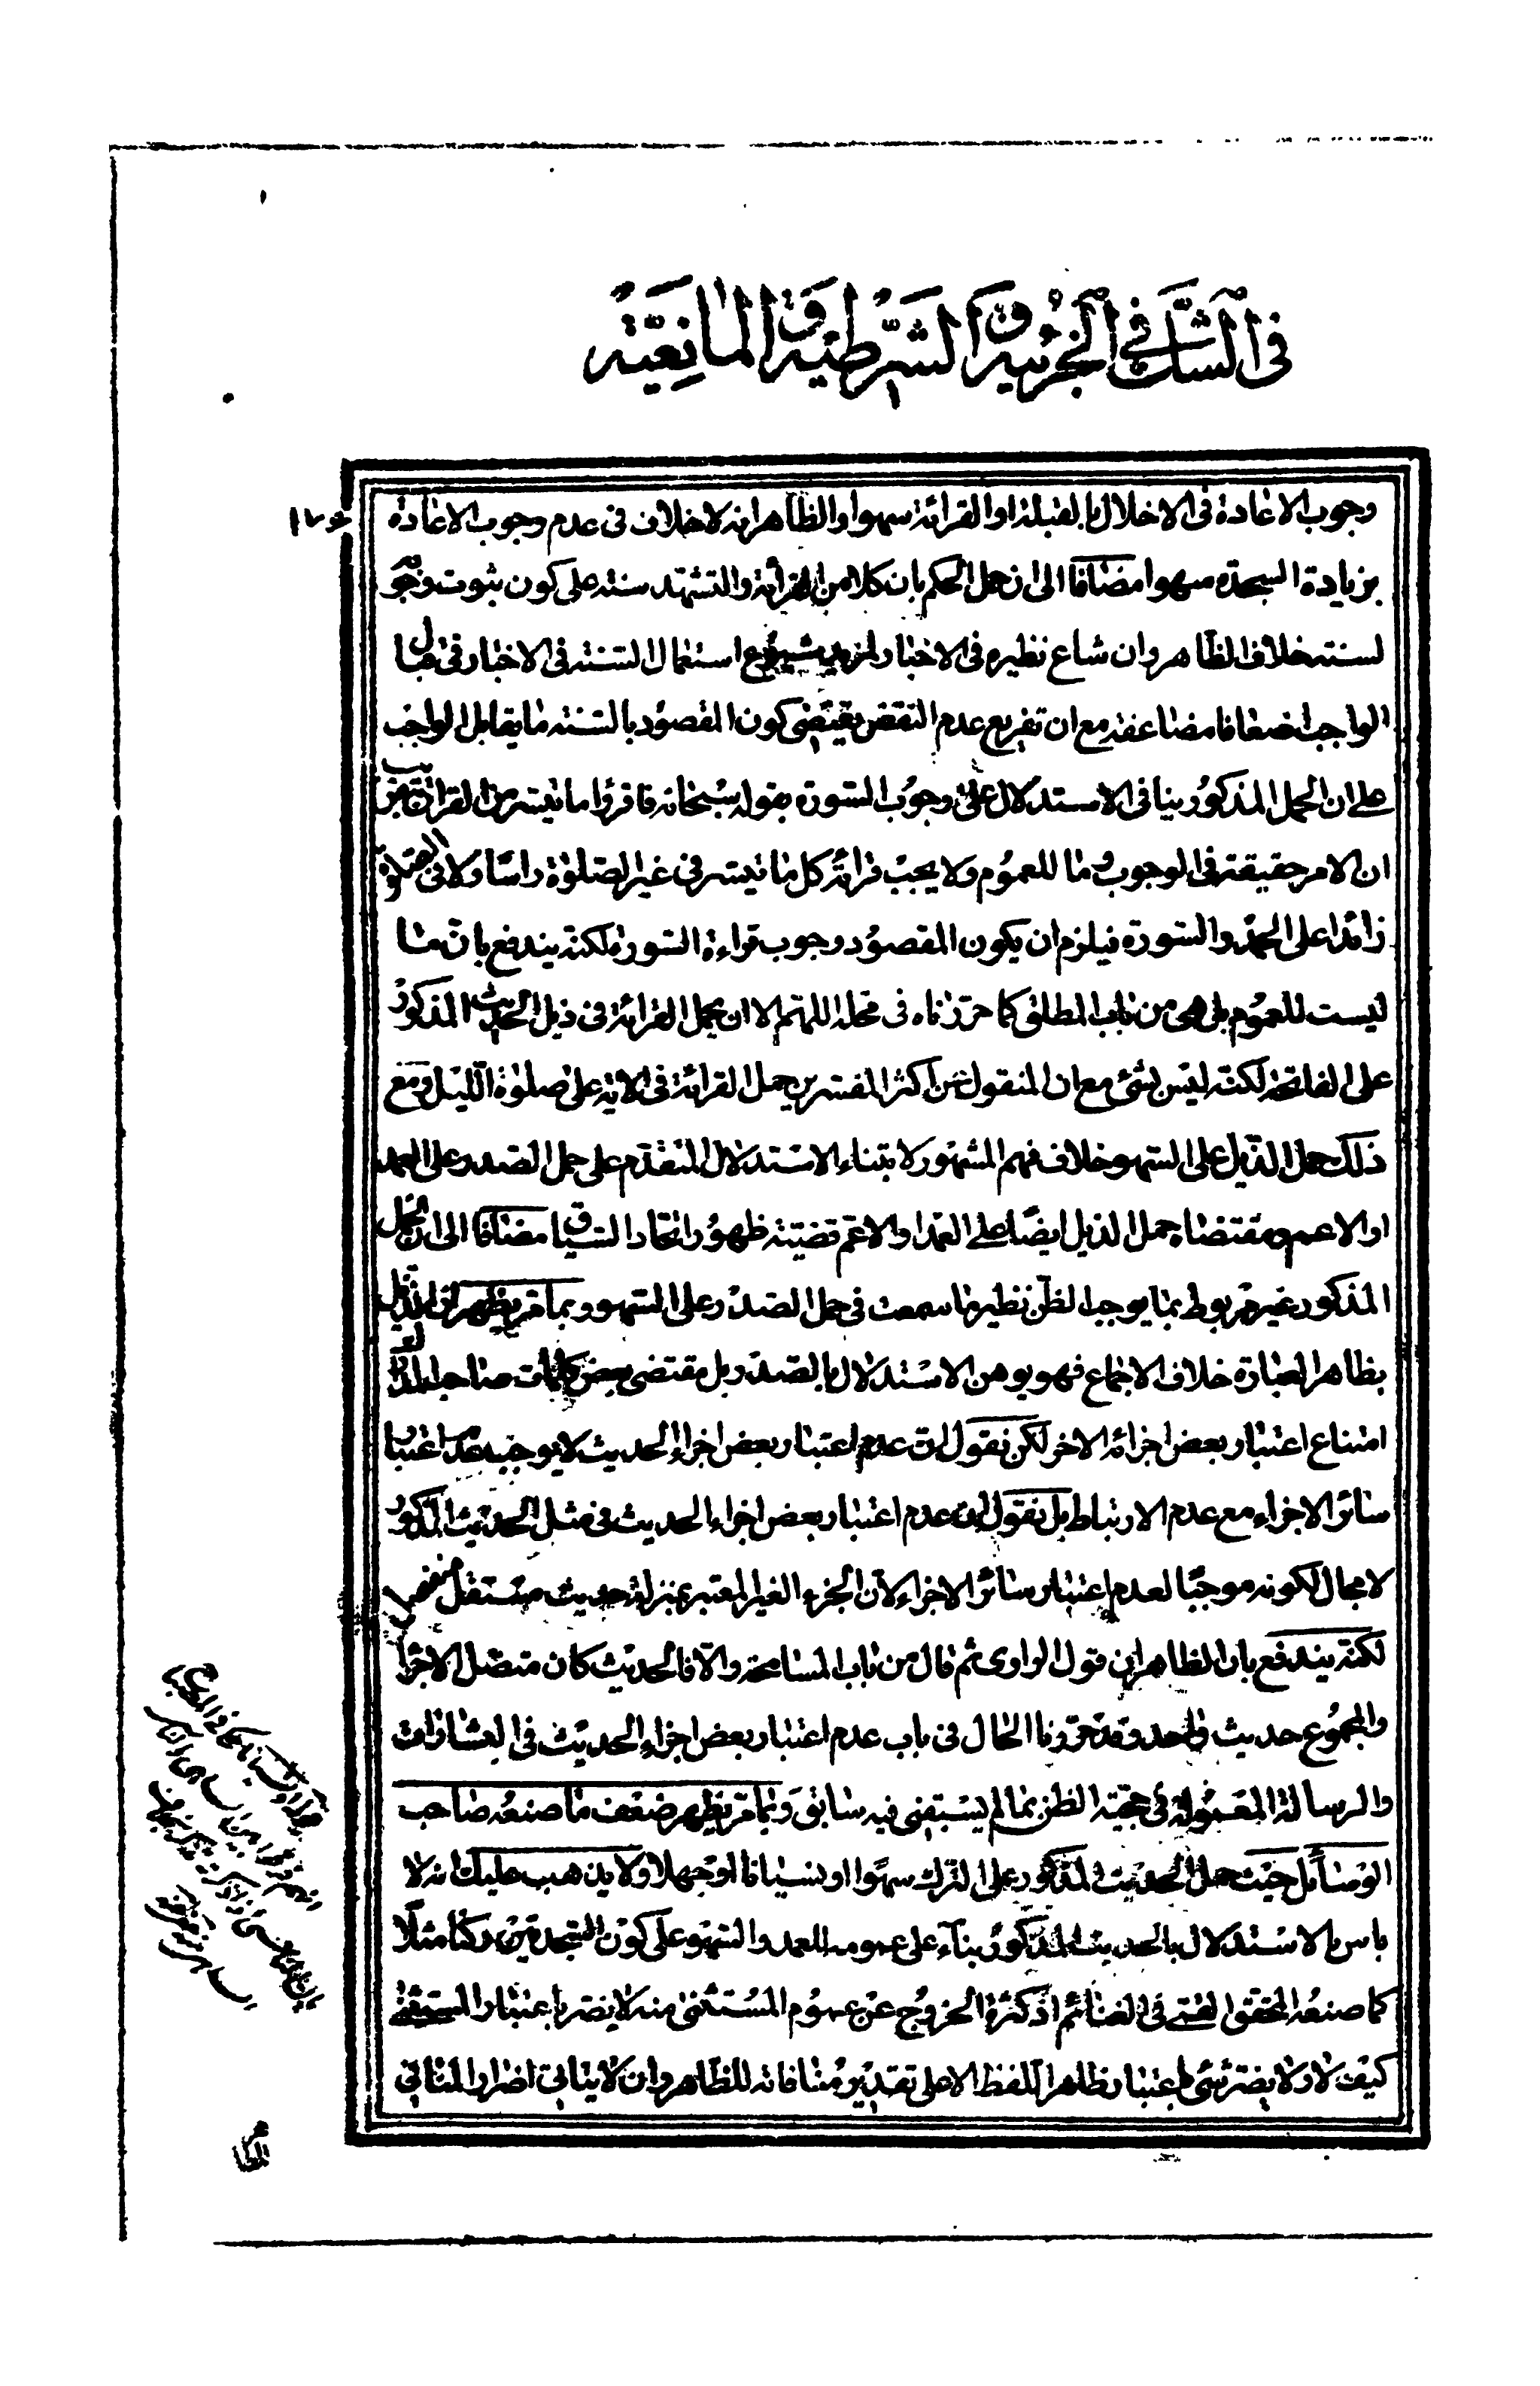 فى الشك فى الجزئية و الشرطية و المانعية
وجوب الاعادة فى الاخلال بالقبلة او القرائة سهوا والظاهر انه لا خلاف فى عدم وجوب الاعادة
١٧٤
بزيادة السجدة سهوا مضافا الى ان حمل الحكم بان كلا من القرائة والتشهد سنة على كون ثبوت وجوبه
لسنته خلاف الظاهر وان شاع نظيره فى الاخبار لمزيد شيوع استعمال السنة فى الاخبار فى قبال
الواجب اضعافا مضاعفة مع ان تفريع عدم النقض يقتضى كون المقصود بالسنة ما يقابل الواجب
على ان الحمل المذكور ينافى الاستدلال على وجوب السورة بقوله سبحانه فاقرؤا ما تيسر من القران بتقريب
ان الامر حقيقة فى الوجوب وما للعموم ولا يجب قرائة كل ما تيسر فى غير الصلوة راسا ولا فى الصلوة
زائدا على الحمد والسورة فيلزم ان يكون المقصود وجوب قراءة السورة لكنه يندفع بان ما
ليست للعموم بل هى من باب المطلق كما حررناه فى محله اللهم الا ان يحمل القرائة فى ذيل الحديث المذكور
على الفاتحة لكنه ليس بشئ مع ان المنقول عن اكثر المفسرين حمل القرائة فى الاية على صلوة الليل ومع
ذلك حمل الذيل على السهو خلاف فهم المشهور لابتناء الاستدلال المتقدم على حمل الصدر على العمد
او الاعم ومقتضاه حمل الذيل ايضا على العمد او الاعم قضية ظهور اتحاد السياق مضافا الى ان الحمل
المذكور غير مربوط بما يوجب الظن نظير ما سمعت فى حمل الصدر على السهو وبما مر يظهر ان الذيل
بظاهر العبارة خلاف الاجماع فهو يوهن الاستدلال بالصدر بل مقتضى بعض كلمات صاحب المدارك
امتناع اعتبار بعض اجزائه الاخر لكن نقول ان عدم اعتبار بعض اجزاء الحديث لا يوجب عدم اعتبار
سائر الاجزاء مع عدم الارتباط بل نقول ان عدم اعتبار بعض اجزاء الحديث فى مثل الحديث المذكور
لا مجال لكونه موجبا لعدم اعتبار سائر الاجزاء لان الجزء الغير المعتبر بمنزلة حديث مستقل منفصل
لكنه يندفع بان الظاهر ان قول الراوى ثم قال من باب المسامحة والا فالحديث كان متصل الاجزاء
والمجموع حديث واحد وقد حررنا الحال فى باب عدم اعتبار بعض اجزاء الحديث فى البشارات
والرسالة المعمولة فى حجية الظن بما لم يسبقنى فيه سابق وبما مر يظهر ضعف ما صنعه صاحب
الوسائل حيث حمل الحديث المذكور على الترك سهوا او نسيانا او جهلا ولا يذهب عليك انه لا
باس بالاستدلال بالحديث المذكور بناء على عمومه للعمد والسهو على كون السجدتين ركنا مثلا
كما صنعه المحقق القمى فى الغنائم اذ كثرة الخروج عن عموم المستثنى منه لا يضر باعتبار المستثنى
كيف لا ولا يضر شئ باعتبار ظاهر اللفظ الا على تقدير منافاته للظاهر وان لا ينافى اضرار المنافى